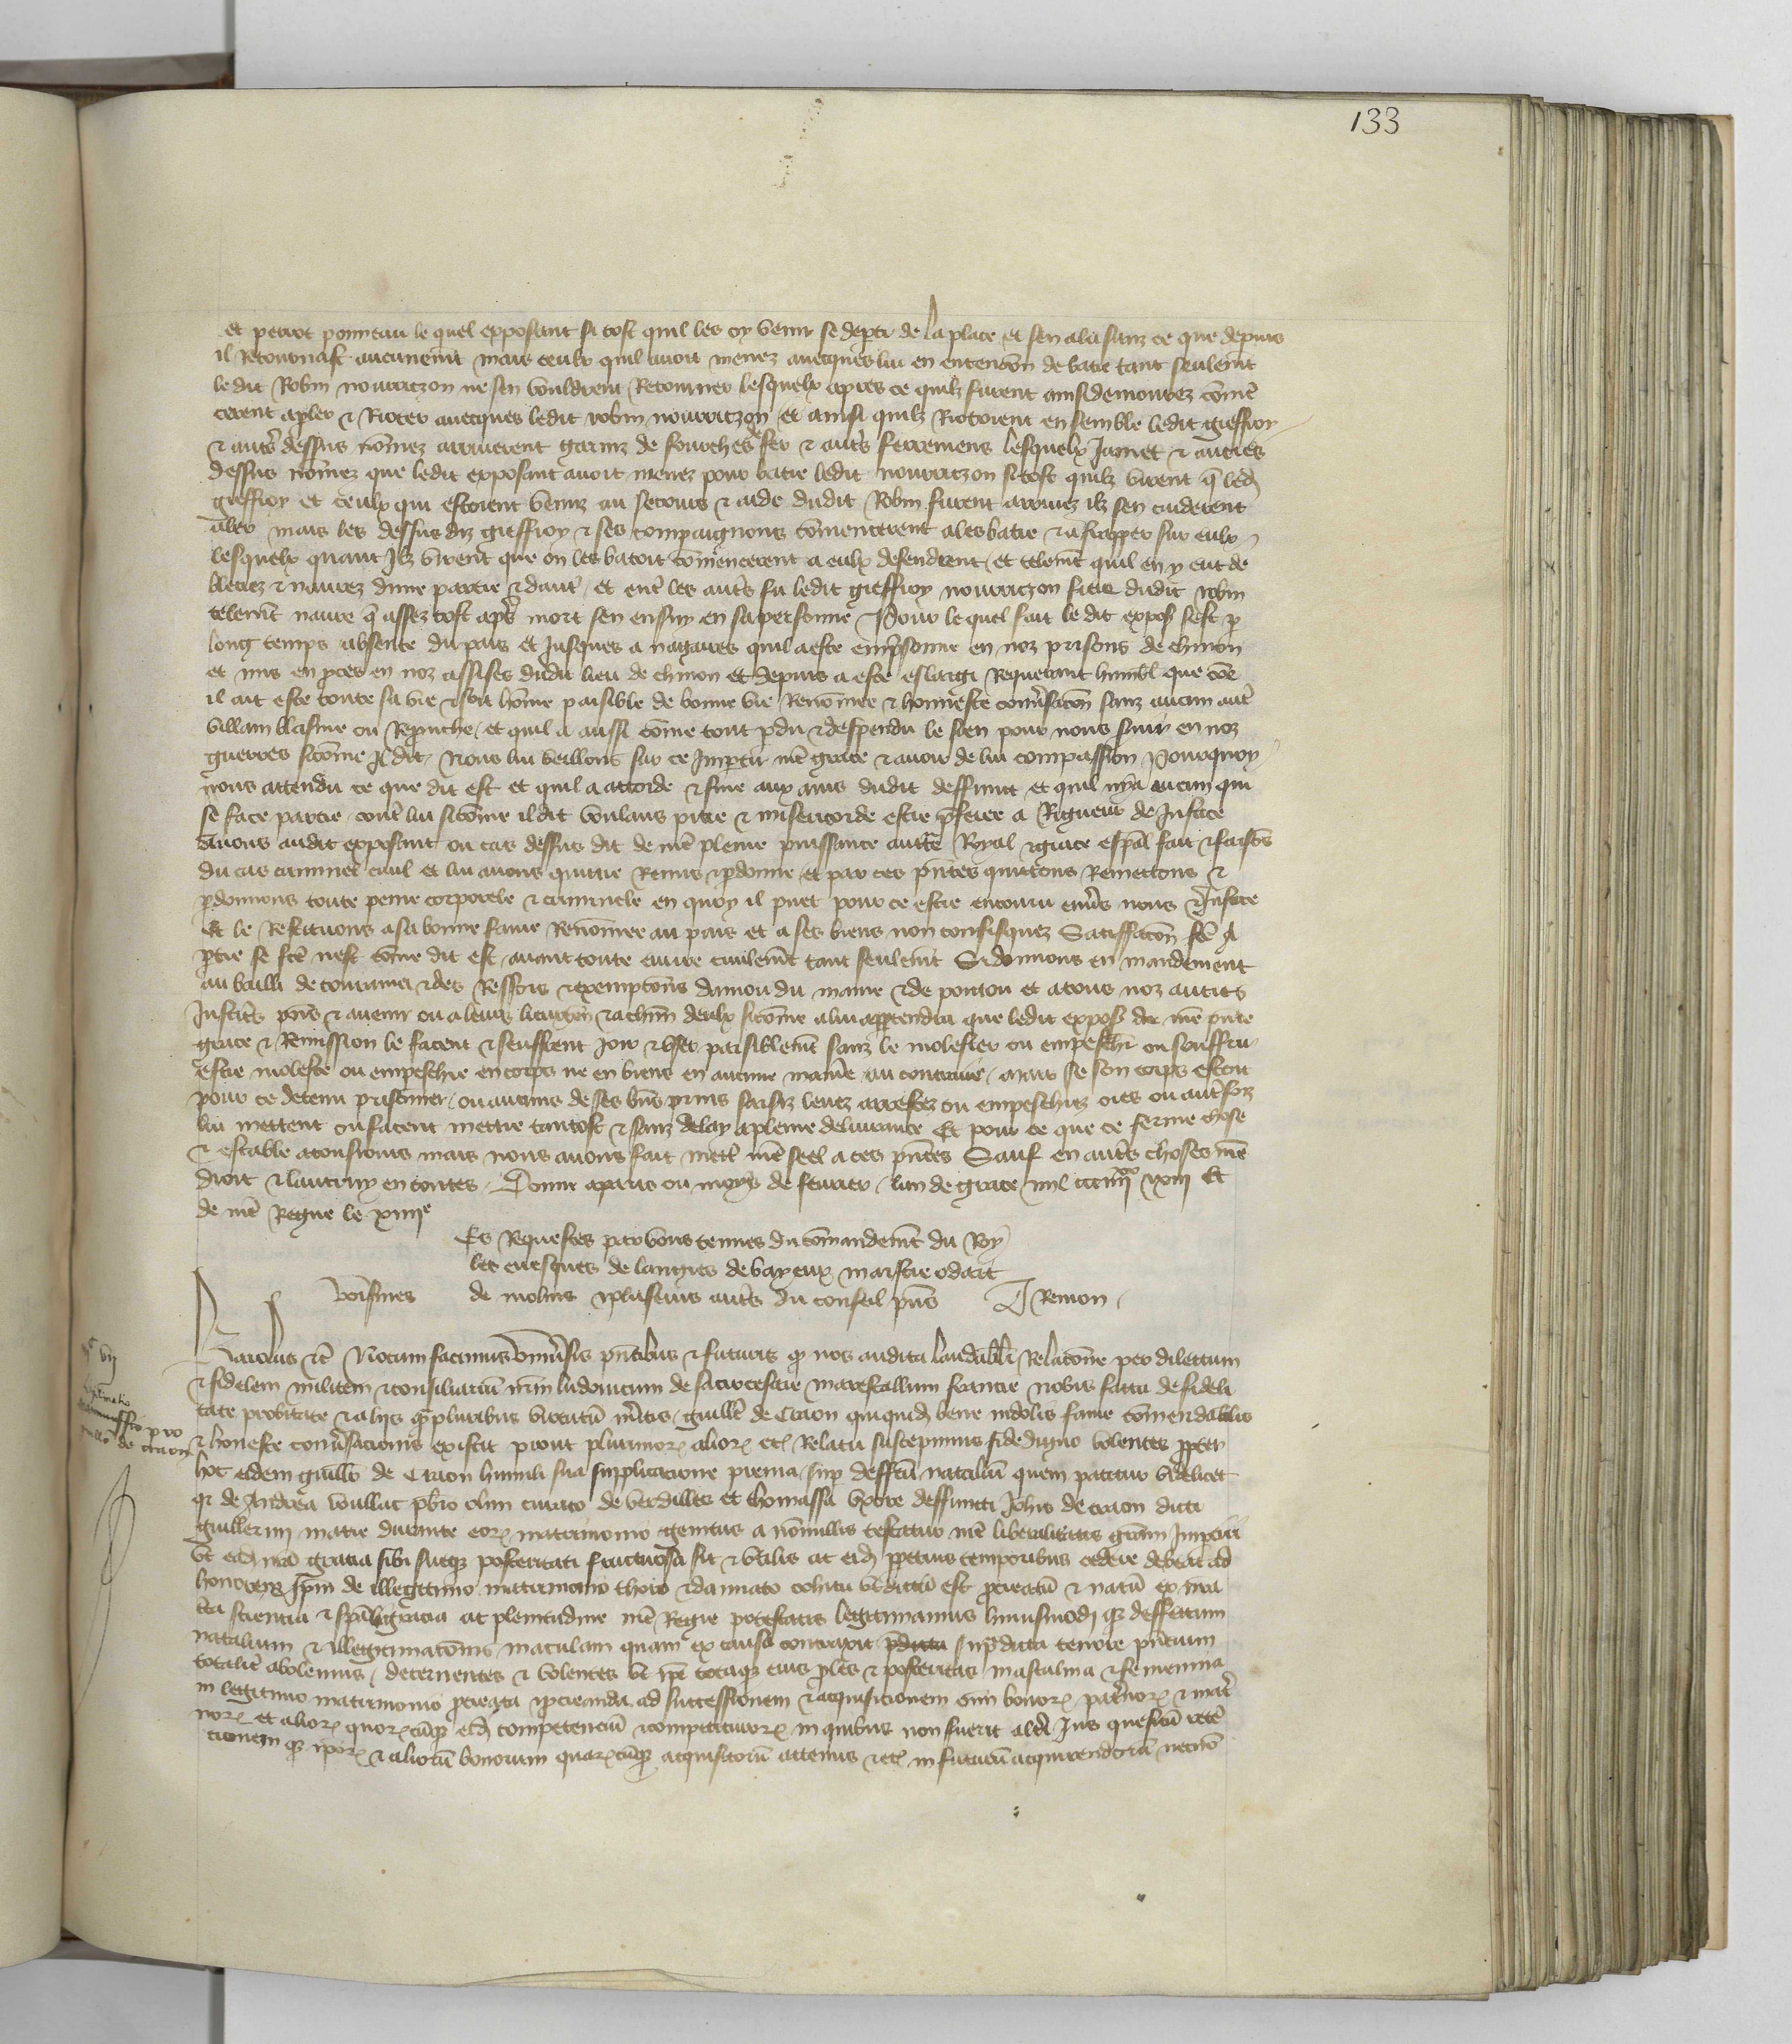 133
et perrot pointeau le quel exposant si tost quil les oy venir se depti de la place et sen ala sanz ce que depuis
il Retournast aucunemt mais ceulx quil avoit menez avecques lui en entencōn de batre tant seulemt
le dit Robin nourrizon ne sen vouldrent Retourner lesquelx apres ce quilz furent ainsi demourez cōmē
cerent a pler & Rioter avecques ledit robin nourrizon et ainsi quilz Riotoient ensemble ledit gieffroy
& autres dessus nōmez arriverent garniz de fourches de fer & autres ferremens lesquelx Jamet & autres
dessus nōmez que ledit exposant avoit menez pour batre ledit nourrizon si tost quilz virent q̄ led
gieffroy et ceulx qui estoient venuz au secours & aide dudit Robin furent arrivez ilz sen cuiderent
aler mais les dessus diz gieffroy & ses compaignons cōmencerent a les batre & a frapper sur eulx
lesquelx quant Ilz virent que on les batoit cōmencerent a eulx defendrent et telemt quil en y eut de
bleciez & navrez dune partie & dautre et entre les autres fu ledit gieffroy nourrizon frere dudit robin
telemt navre q̄ assez tost apres mort sen ensuy en sa personne Pour lequel fait ledit expos sest p
long temps absente du pais et Jusques a nagaires quil a este emprisonne en noz prisons de chinon
et mis en pces en noz assises dudit lieu de chinon et depuis a este eslargi Requerant humbl que cōe
il ait este toute sa vie & soit hōme paisible de bonne vie Renōmee & honneste conversacōn sanz aucun autre
villain blasme ou Reprouche et quil a aussi cōme tout pdu & despendu le sien pour nous servir en noz
guerres sicōme Il dit Nous lui veillons sur ce Impertir nre grace & avoir de lui compassion Pourquoy
nous attendu ce que dit est et quil a accorde & fine aux amis dudit deffunct et quil ny a aucun qui
se face partie contre lui sicōme il dit voulans pitie & misericorde estre preferee a Rigueur de Justice
Avons audit exposant ou cas dessus dit de nre pleine puissance auctte Royal & grace espal fait & faisōs
du cas criminel civil et lui avons quitte Remis & pdonne et par ces pntes quittons Remettons &
pdonnons toute peine corporele & criminele en quoy il puet pour ce estre encouru envers nous & Justice
Et le Restituons a sa bonne fame Renōmee au pais et a ses biens non confisquez Satisfacōn fce a
ptie se fce nest cōme dit est avant toute euvre civilemt tant seulemt Si donnons en mandement
au bailli de touraine & des Ressors & exempcōns danjou du maine & de poitou et a tous noz autres
Justiciers pns & avenir ou a leurs lieuxten & a chun deulx sicōme a lui appartendra que ledit expos de nre pnte
grace & Remission le facent & seuffrent Joir & user paisiblemt sanz le molester ou empeschr ou souffrir
estre moleste ou empeschie en corps ne en biens en aucune maniē au contraire mais se son corps estoit
pour ce detenu prisonnier ou aucuns de ses bns prins saisiz levez arrestez ou empeschiez ores ou autrefoiz
lui mettent ou facent mettre tantost & sanz delay a pleine delivrance Et pour ce que ce ferme chose
& estable a tousiours mais nous avons fait mettre nre seel a ces pntes Sauf en autres choses nre
droit & lautruy en toutes Donne a paris ou moys de fevrier lan de grace mil cccIIIIxx xiii Et
de nre Regne le xiiiie
Es Requestes par vous tenues du cōmandemt du Roy
les evesques de langres de bayeux maistre odart
voisines de molins & plusieurs autres du conseil pns J Remon
Karolus etc Notum facimus universis pntibus & futuris q nos audita laudabili Relacōne per dilectum
& fidelem militem & consiliariū nrm ludovicum de sacrocesare marescallum francie nobis facta de fideli
tate probitate & aliis qpluribus virtutū meritis guillī de Craon qui quid bene indolis fame cōmendabilis
& honeste conversacionis existit prout plurimor alior etc Relatu suscepimus fidedigno volentes ppter
hoc eidem guillo de Craon humili sua supplicacione previa sup deffectu nataliū quem patitur videlicet
qr de Andrea voullat pbro olim curato de verdilles et thomassa uxore deffuncti Johis de craon dicti
guillermi matre durante eor matrimonio genitus a nōnullis testatur nre liberalitatis gram Imptiri
ut eid nra gratia sibi suisq posteritati fructuosa sit & utilis ac eid ppetuis temporibus cedere debeat ad
honorem Ipm de illegitimo matrimonio thoro & damnato cohitu ut dictū est procreatū & natū ex nra
cta scientia & spali gracia ac plenitudine nre Regie potestatis legitimamus huiusmodi q deffectum
natalium & illegitimacōnis maculam quam ex causa contraxit pdicta supdicta tenore pntium
totalit abolemus decernentes & volentes ut ipe totaq eius ples & posteritas masculina & femenina
in legitimo matrimonio procreata & procreanda ad successionem & acquisicionem oim bonor paternor & mat
nor et alior quorcūq eid competenciū & competitur in quibus non fuerit alteri Jus quesitū rete
cionem q ipor & aliorū bonorum quarcūq acquisitorū actenus & etc in futurū acquirendorū necnō
vij
legitimatio
pro
guillo de craon